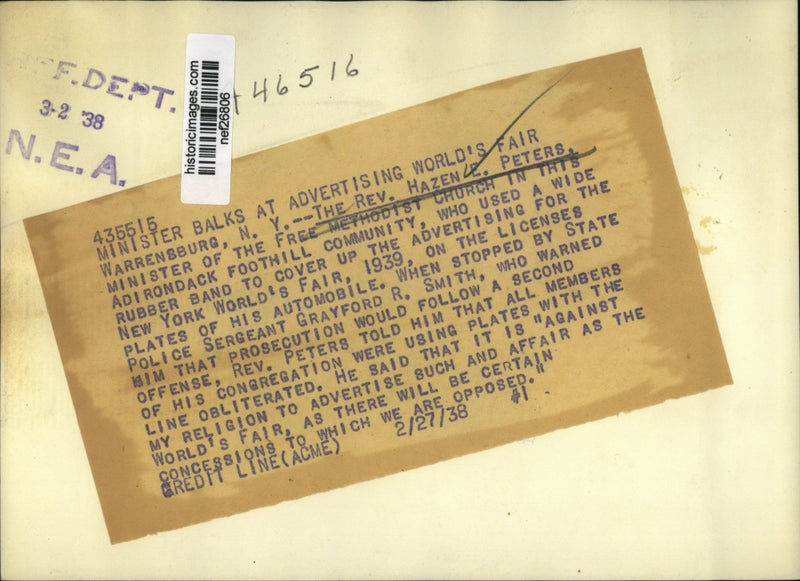 F. DEPT.
3-2 '38
N.E.A.
historicimages.com
nef26806
46516
435515
MINISTER BALKS AT ADVERTISING WORLD'S FAIR
WARRENSBURG, N. Y.--THE REV. HAZEN L. PETERS,
MINISTER OF THE FREE METHODIST CHURCH IN THIS
ADIRONDACK FOOTHILL COMMUNITY, WHO USED A WIDE
RUBBER BAND TO COVER UP THE ADVERTISING FOR THE
NEW YORK WORLD'S FAIR, 1939, ON THE LICENSES
PLATES OF HIS AUTOMOBILE. WHEN STOPPED BY STATE
POLICE SERGEANT GRAYFORD R. SMITH, WHO WARNED
HIM THAT PROSECUTION WOULD FOLLOW A SECOND
OFFENSE, REV. PETERS TOLD HIM THAT ALL MEMBERS
OF HIS CONGREGATION WERE USING PLATES WITH THE
LINE OBLITERATED. HE SAID THAT IT IS "AGAINST
MY RELIGION TO ADVERTISE SUCH AND AFFAIR AS THE
WORLD'S FAIR, AS THERE WILL BE CERTAIN
CONCESSIONS TO WHICH WE ARE OPPOSED."
CREDIT LINE(ACME) 2/27/38 #1